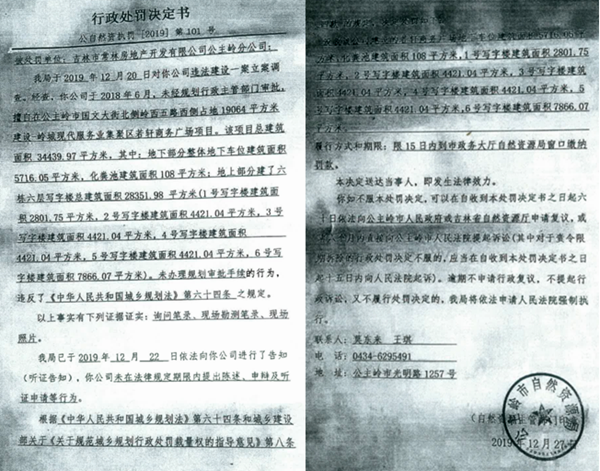 行政处罚决定书
公自然资执罚 [2019] 第 101 号
被处罚单位：吉林市常林房地产开发有限公司公主岭分公司：
我局于 2019 年 12 月 20 日对你公司违法建设一案立案调
查。经查，你公司于 2018 年 6 月，未经规划行政主管部门审批，
擅自在公主岭市国文大街北侧岭西五路西侧占地 19064 平方米
建设岭城现代服务业集聚区首轩商务广场项目。该项目总建筑
面积 34439.97 平方米，其中：地下部分整体地下车位建筑面积
5716.05 平方米，化粪池建筑面积 108 平方米；地上部分建了六
栋六层写字楼总建筑面积 28351.98 平方米(1 号写字楼建筑面
积 2801.75 平方米，2 号写字楼建筑面积 4421.04 平方米，3 号
写字楼建筑面积 4421.04 平方米，4 号写字楼建筑面积
4421.04 平方米，5 号写字楼建筑面积 4421.04 平方米，6 号写
字楼建筑面积 7866.07 平方米)。未办理规划审批手续的行为，
违反了《中华人民共和国城乡规划法》第六十四条 之规定。
以上事实有下列证据证实：询问笔录、现场勘测笔录、现场
照片。
我局已于 2019 年 12 月 22 日依法向你公司进行了告知
（听证告知），你公司未在法律规定期限内提出陈述、申辩及听
证申请等行为。
根据《中华人民共和国城乡规划法》第六十四条和城乡建设
部关于《关于规范城乡规划行政处罚裁量权的指导意见》第八条
化粪池建筑面积 108 平方米，1 号写字楼建筑面积 2801.75
平方米，2 号写字楼建筑面积 4421.04 平方米，3 号写字楼建筑
面积 4421.04 平方米，4 号写字楼建筑面积 4421.04 平方米，5
号写字楼建筑面积 4421.04 平方米，6 号写字楼建筑面积 7866.07
平方米)
履行方式和期限：限 15 日内到市政务大厅自然资源局窗口缴纳
罚款。
本决定送达当事人，即发生法律效力。
你如不服本决定，可以在自收到本处罚决定书之日起六
十日依法向公主岭市人民政府或吉林省自然资源厅申请复议，或
六个月内直接向公主岭市人民法院提起诉讼(其中对于责令限
期拆除的行政处罚决定不服的，应当在自收到本处罚决定书之日
起十五日内向人民法院起诉)。逾期不申请行政复议，不提起行
政诉讼，又不履行处罚决定的，我局将依法申请人民法院强制执
行。
联系人： 莫东来 王琪
电 话： 0434-6295491
地 址： 公主岭市光明路 1257 号
公主岭市自然资源局
(自然资源主管部门印章)
2019 年 12 月 27 日